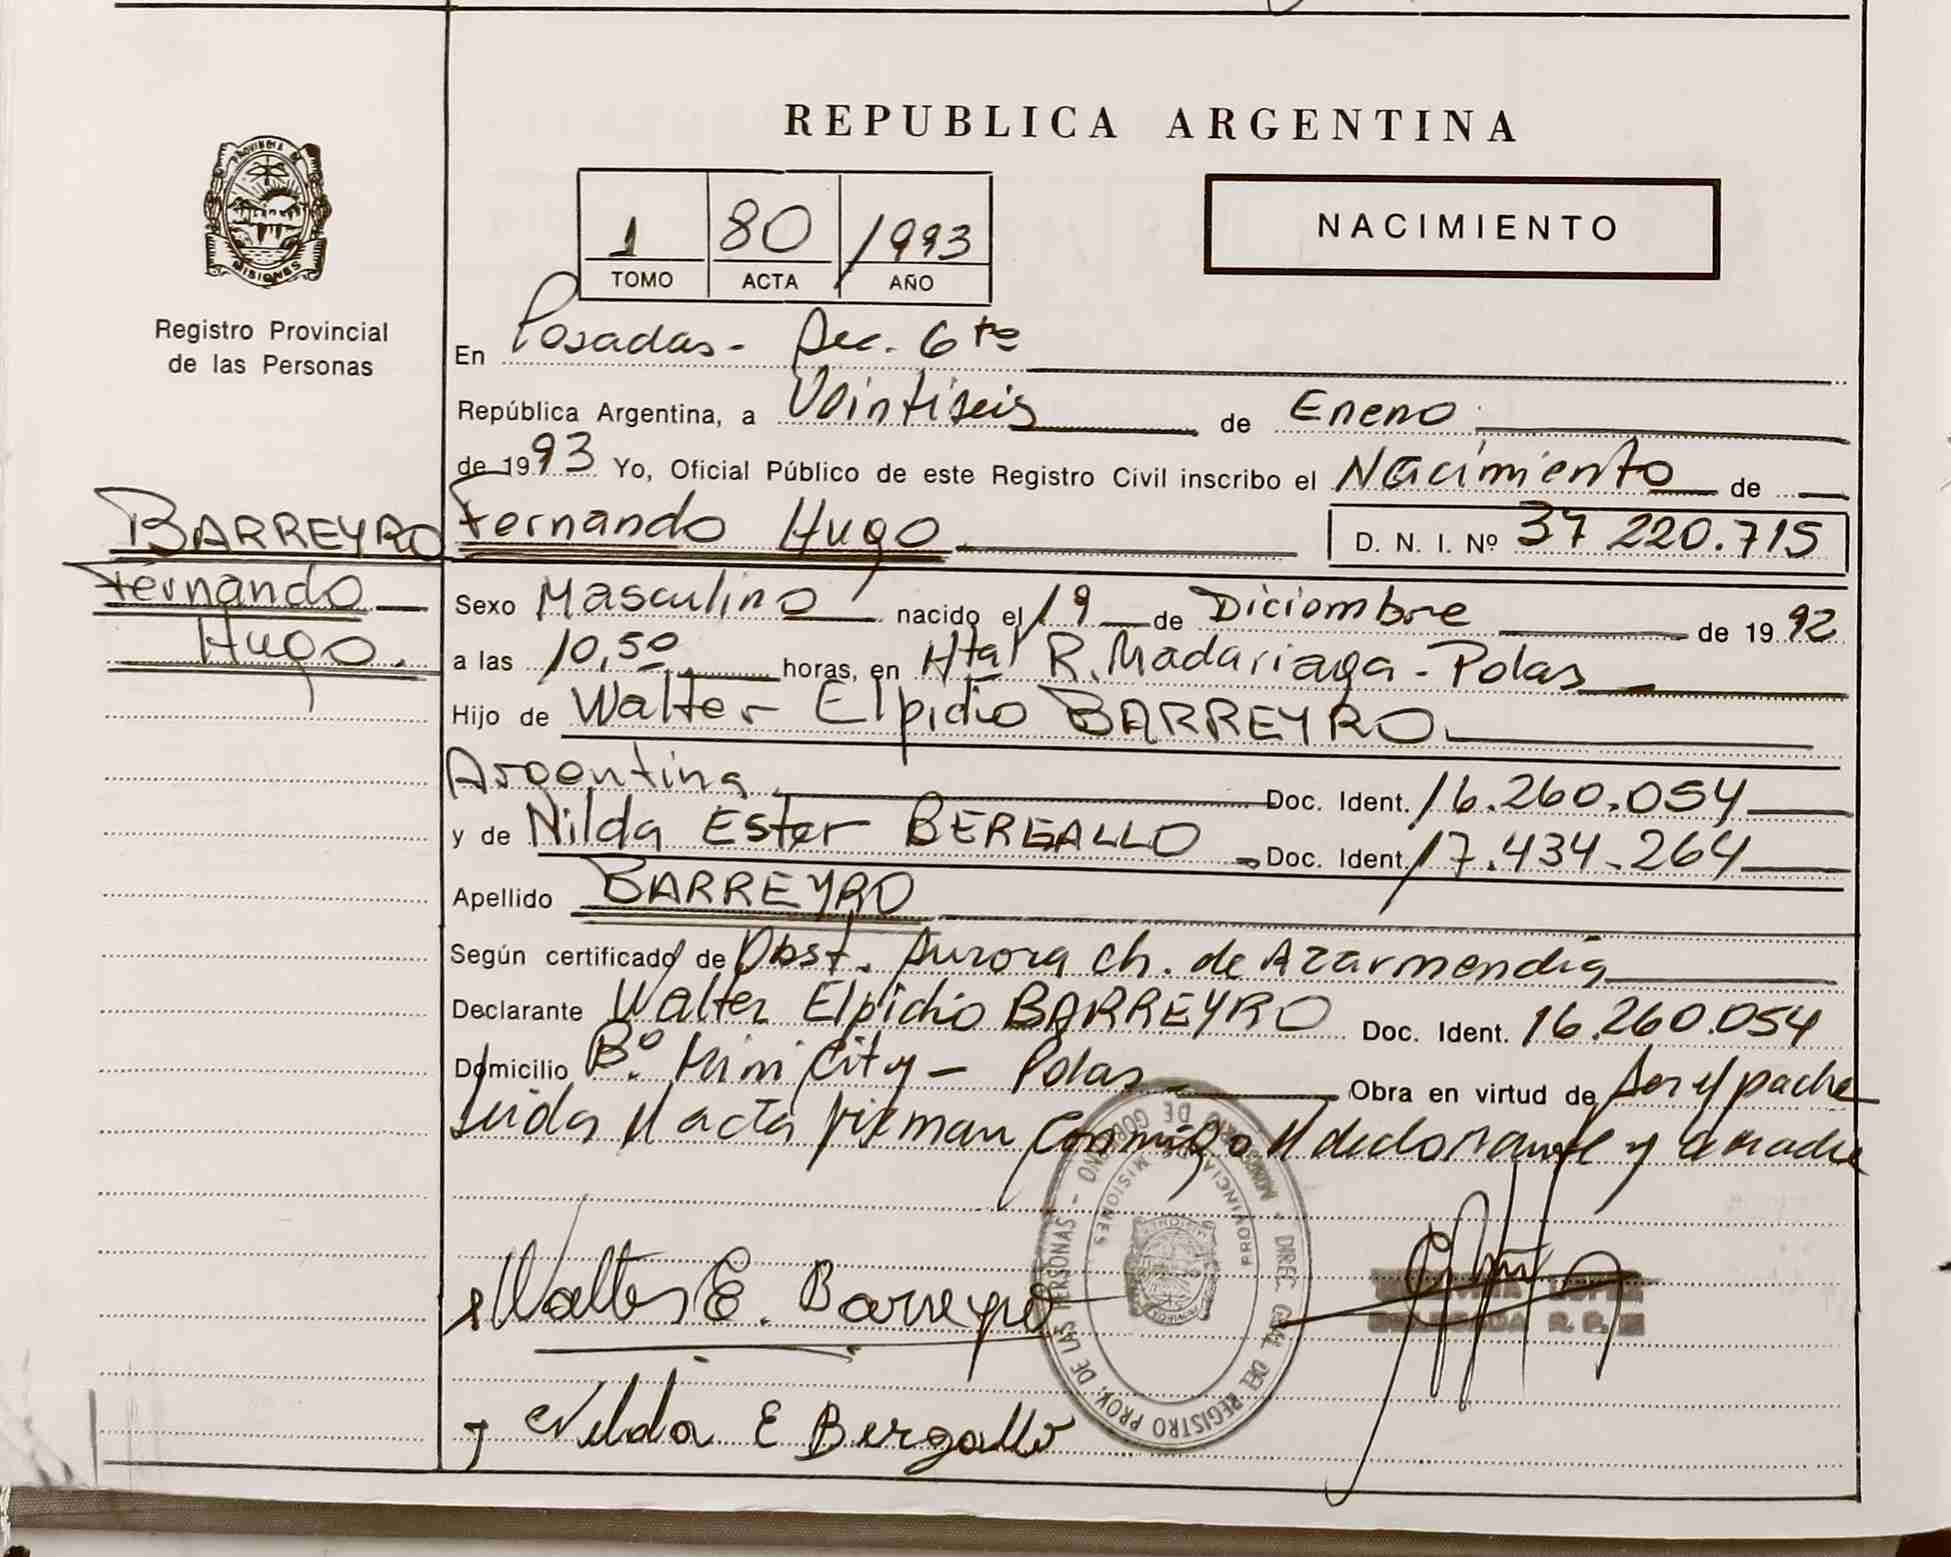 REPUBLICA ARGENTINA
PROVINCIA DE
MISIONES
Registro Provincial
de las Personas
1 80 1993
TOMO ACTA AÑO
NACIMIENTO
En Posadas - Sec. 6ta
República Argentina, a Veintiseis de Enero
de 1993 Yo, Oficial Público de este Registro Civil inscribo el Nacimiento de
BARREYRO
Fernando
Hugo.
Fernando Hugo D. N. I. Nº 37 220.715
Sexo Masculino nacido el 19 de Diciembre de 1992
a las 10,50 horas, en Htal R. Madariaga - Pdas
Hijo de Walter Elpidio BARREYRO.
Argentina Doc. Ident. 16.260.054
y de Nilda Ester BERGALLO Doc. Ident. 17.434.264
Apellido BARREYRO
Según certificado de Obst. Aurora Ch. de Azarmendia
Declarante Walter Elpidio BARREYRO Doc. Ident. 16.260.054
Domicilio Bº. Mini City - Pdas Obra en virtud de Ser el padre
Leida el acta firman conmigo el declarante y la madre
Walter E. Barreyro
Nilda E Bergallo
DIREC. GRAL. DEL REGISTRO PROV. DE LAS PERSONAS -
PROVINCIA
MISIONES
LOPEZ
DELEGADA R. P.